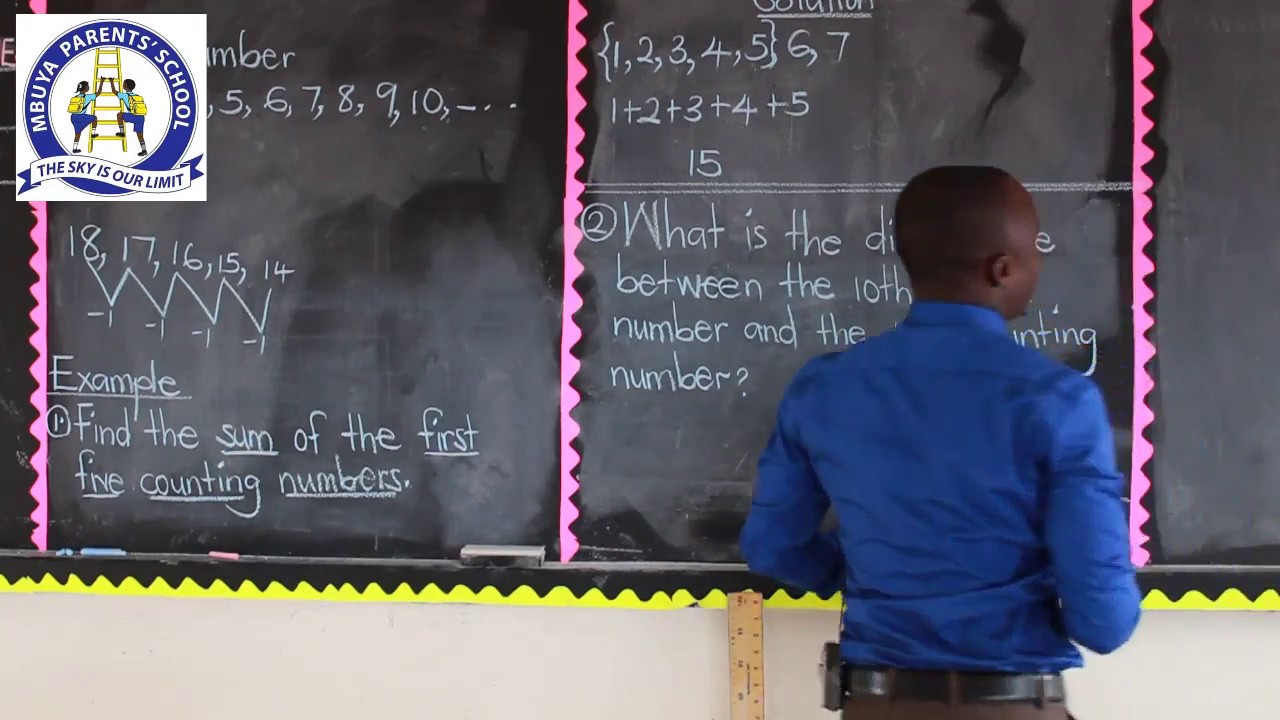 MBUYA PARENTS' SCHOOL
THE SKY IS OUR LIMIT
, 5, 6, 7, 8, 9, 10, -...
18, 17, 16, 15, 14
-1 -1 -1 -1
Example
1. Find the sum of the first
five counting numbers.
Solution
{1, 2, 3, 4, 5} 6, 7
1+2+3+4+5
15
2 What is the
between the 10th
number and the
number?